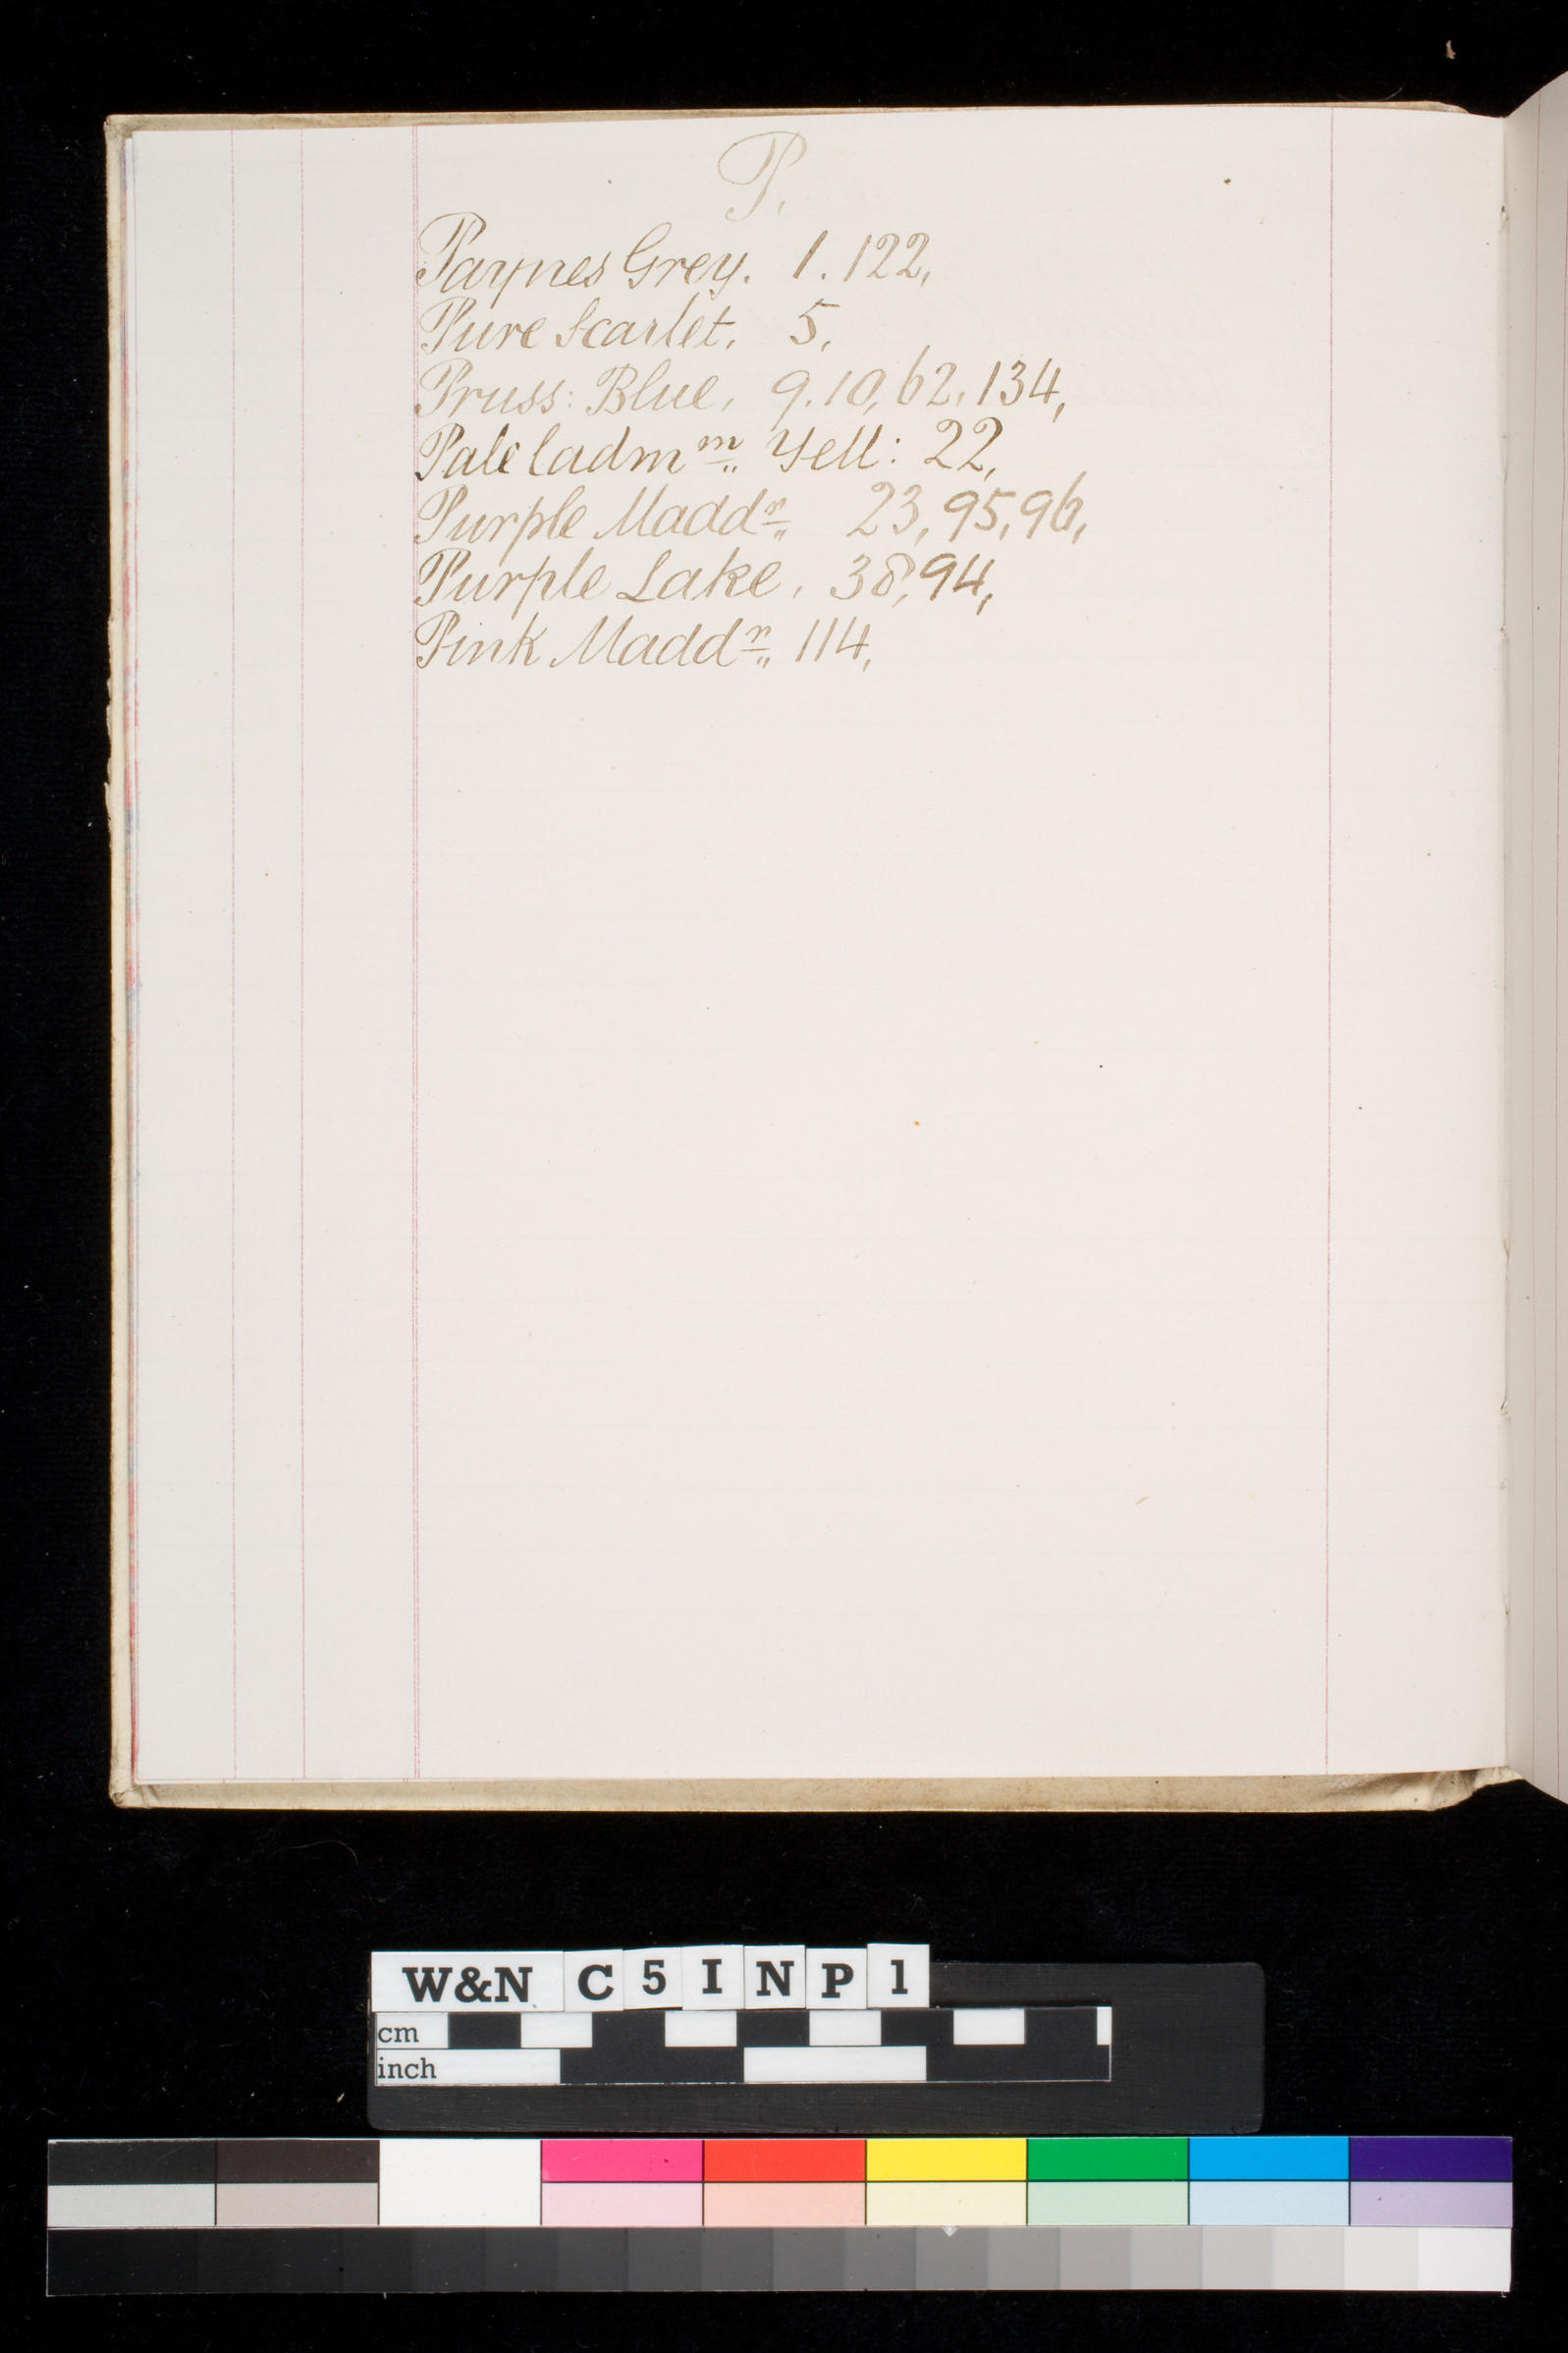 P.
Paynes Grey. 1. 122,
Pure Scarlet, 5,
Pruss: Blue, 9. 10, 62, 134,
Pale Cadmᵐ Yell: 22,
Purple Maddʳ 23, 95, 96,
Purple Lake, 38, 94,
Pink Maddʳ 114,
W&N C 5 I N P 1
cm
inch